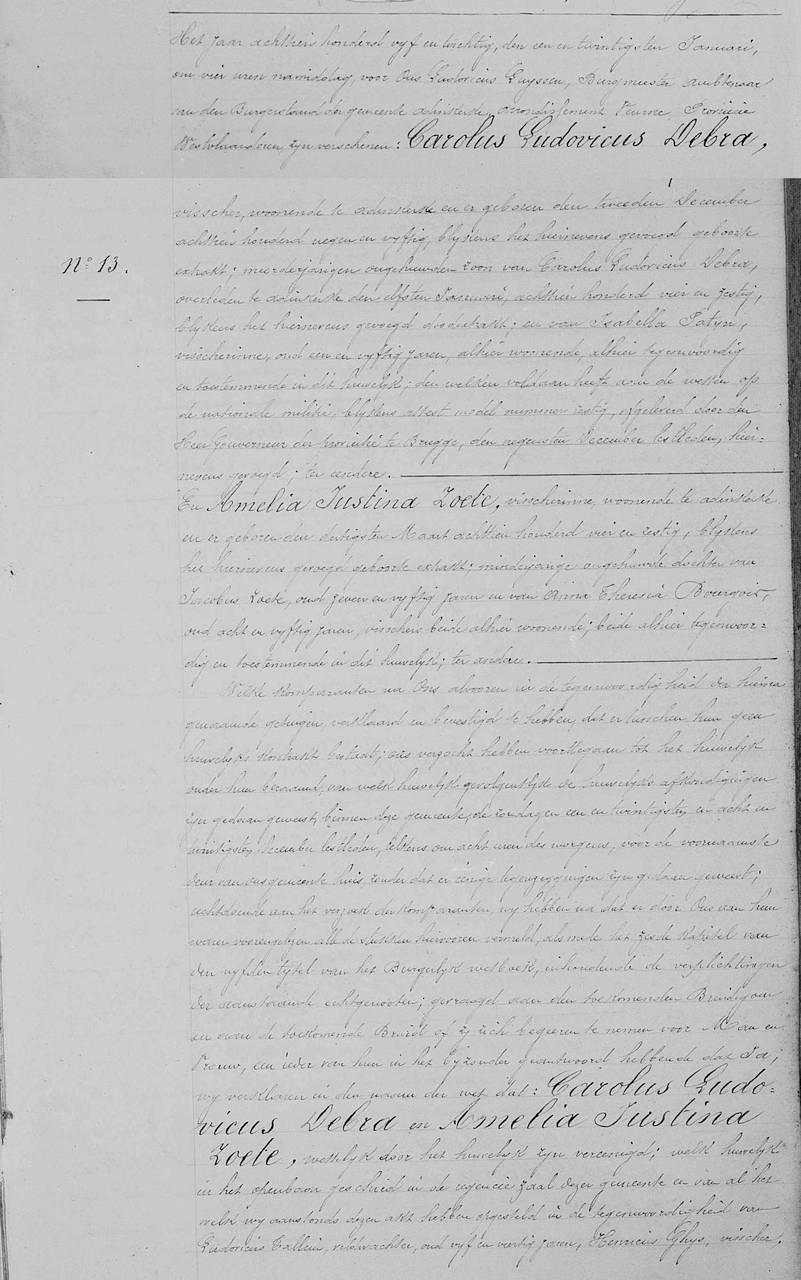 Het jaar achttien honderd vyf en tachtig, den een en twintigsten Januari,
om vier uren namiddag, voor Ons Ludovicus Luyssen, Burgmeester ambtenaar
van den Burgerstand der gemeente Adinkerke, Arrondissement Veurne, Provincie
Westvlaanderen, zyn verschenen: Carolus Ludovicus Debra,
visscher, woonende te Adinkerke en er geboren den tweeden December
achttien honderd negen en vyftig, blykens het hiernevens gevoegd geboorte
Nº 13.
extrakt; meerderjarigen ongehuwden zoon van Carolus Ludovicus Debra,
overleden te Adinkerke den elfsten Januari, achttien honderd vier en zestig,
blykens het hiernevens gevoegd doodextrakt; en van Isabella Patyn,
visscherinne, oud een en vyftig jaren, alhier woonende, alhier tegenwoordig
en toestemmende in dit huwelyk; den welken voldaan heeft aan de wetten op
de nationale militie, blykens attest model nummer zestig, afgeleverd door den
Heer Gouverneur der provintie te Brugge, den negensten December lestleden, hier-
nevens gevoegd; ter eendere.
En Amelia Justina Zoete, visscherinne, woonende te Adinkerke
en er geboren den dertigsten Maart achttien honderd vier en zestig, blykens
het hiernevens gevoegd geboorte extrakt; minderjarige ongehuwde dochter van
Jacobus Zoete, oud zeven en vyftig jaren en van Anna Theresia Bourgois,
oud acht en vyftig jaren, visschers beide alhier woonende; beide alhier tegenwoor-
dig en toestemmende in dit huwelyk; ter andere.
Welke komparanten na Ons alvooren in de tegenwoordigheid der hierna
genaamde getuigen, verklaard en bevestigd te hebben, dat er tusschen hun geen
huwelyks kontrakt bestaat; ons verzocht hebben voorttegaan tot het huwelyk
onder hun beraamd, van welk huwelyk gevolgentlyk de huwelyks afkondigingen
zyn gedaan geweest, binnen deze gemeente, de zondagen een en twintigsten en acht en
twintigsten December lestleden, telkens om acht uren des morgens, voor de voornaamste
deur van ons gemeente huis, zonder dat er eenige tegenzeggingen zyn gedaan geweest;
rechtdoende aan het verzoek der komparanten, wy hebben na dat er door Ons aan hun
waren voorengelezen alle de stukken hiervooren vermeld, alsmede het zesde kapitel van
den vyfden tytel van het Burgerlyk wetboek, inhoudende de verplichtingen
der aanstaande echtgenooten; gevraagd aan den toekomenden Bruidegom
en aan de toekomende Bruid of zy zich begeeren te nemen voor Man en
Vrouw, een ieder van hun in het byzonder geantwoord hebbende dat Ja;
wy verklaren in den naam der wet dat: Carolus Ludo-
vicus Debra en Amelia Justina
Zoete, wettelyk door het huwelyk zyn vereenigd; welk huwelyk
in het openbaar geschied in de regencie zaal dezer gemeente en van al het
welk wy aanstonds dezen akt hebben opgesteld in de tegenwoordigheid van
Ludovicus Callein, veldwachter, oud vyf en veertig jaren, Henricus Ghys, visscher,